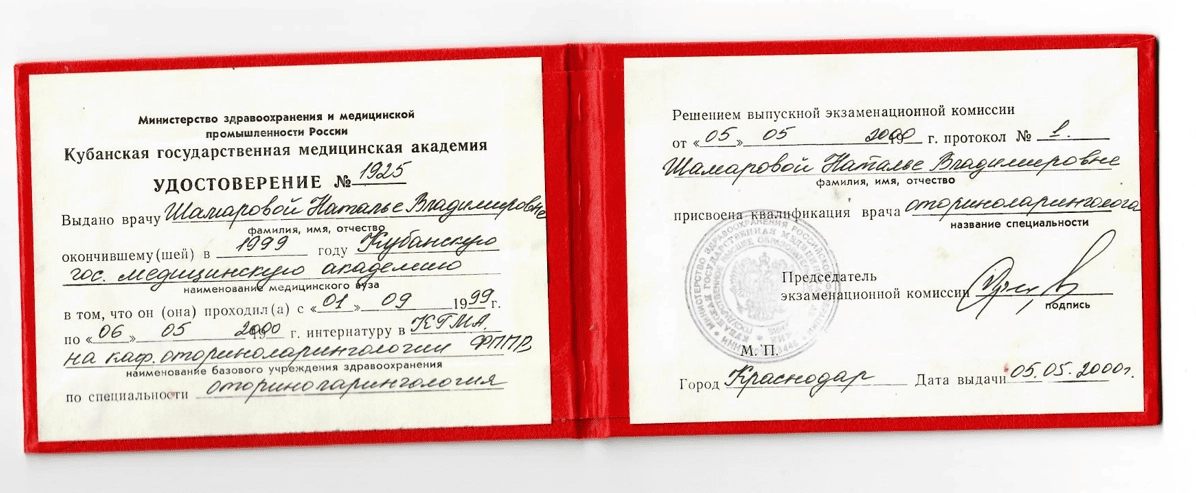 Министерство здравоохранения и медицинской
промышленности России
Кубанская государственная медицинская академия
УДОСТОВЕРЕНИЕ № 1925
Выдано врачу Шамаровой Наталье Владимировне
фамилия, имя, отчество
окончившему(шей) в 1999 году Кубанскую
гос. медицинскую академию
наименование медицинского вуза
в том, что он (она) проходил(а) с «01» 09 1999 г.
по «06» 05 2000 г. интернатуру в КГМА.
на каф. оториноларингологии ФППВ
наименование базового учреждения здравоохранения
по специальности оториноларингология
Решением выпускной экзаменационной комиссии
от «05» 05 2000 г. протокол № 1.
Шамаровой Наталье Владимировне
фамилия, имя, отчество
присвоена квалификация врача оториноларинголога
название специальности
Председатель
экзаменационной комиссии
подпись
М. П.
Город Краснодар Дата выдачи 05.05.2000г.